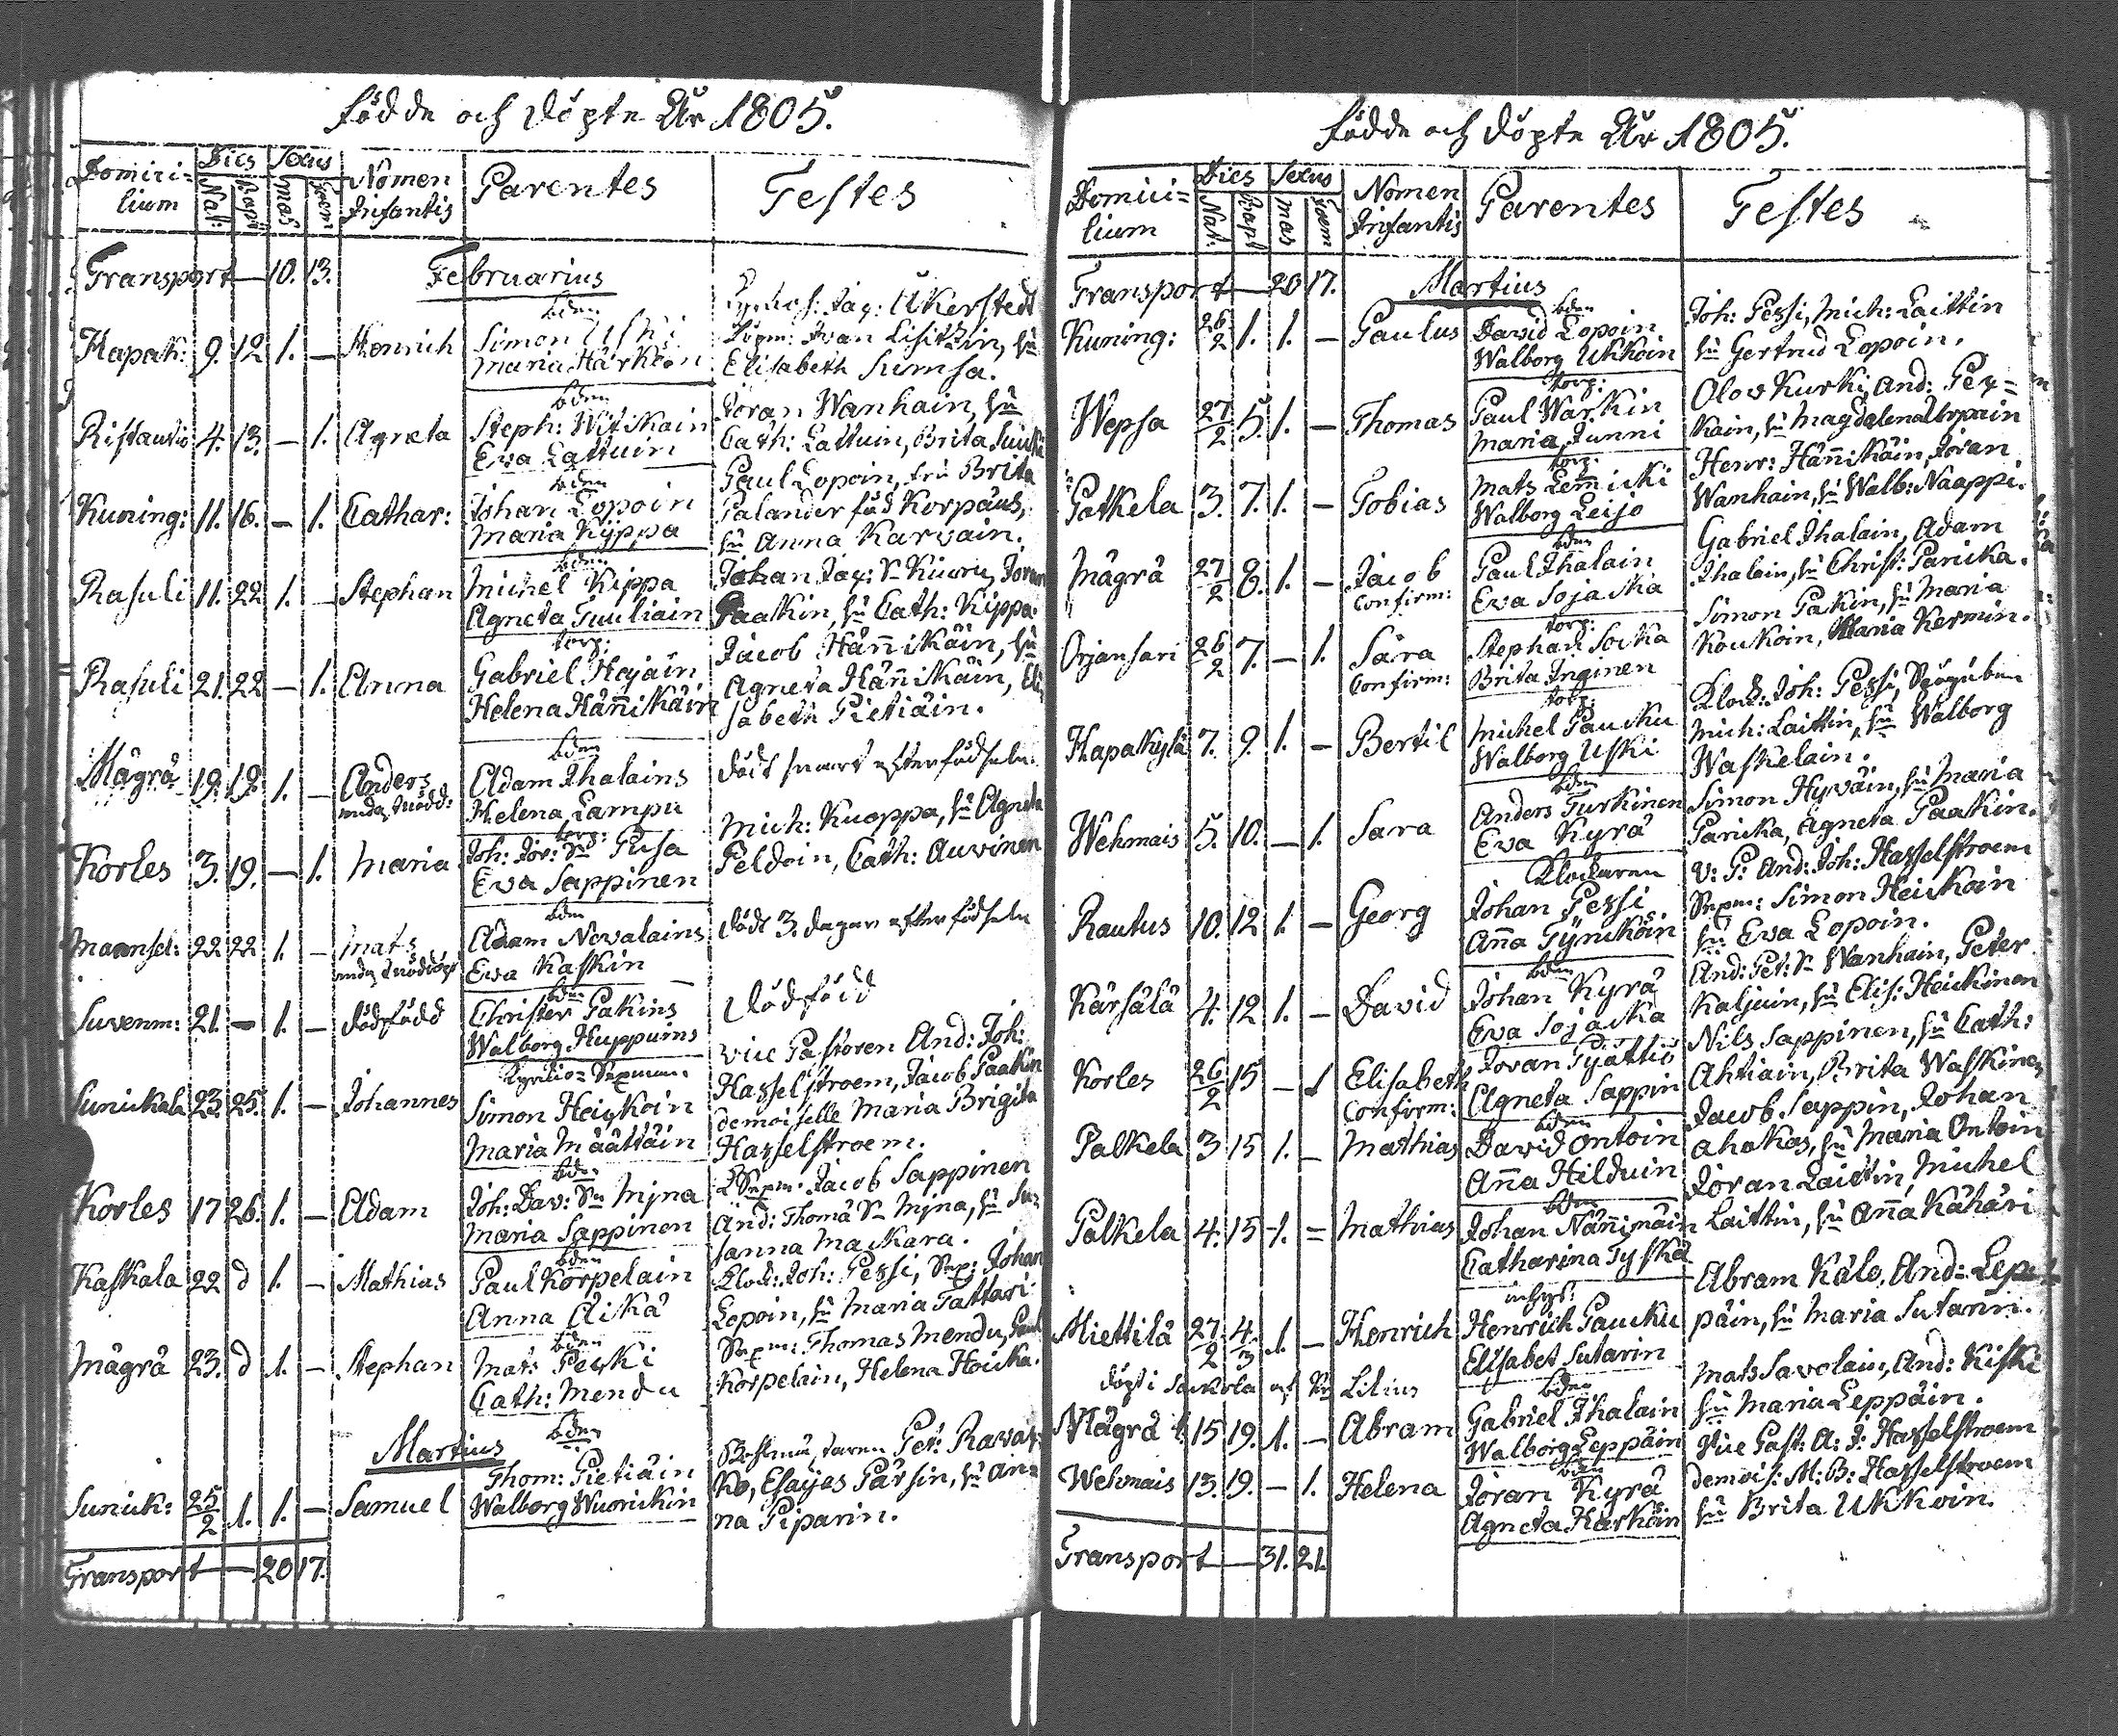 Födde och Döpte År 1805.
Domici=
lium
Dies
Nat:
Bapt:
Sexus
mas
Foem
Nomen
Infantis
Parentes
Testes
Transport — 10. 13.
Februarius
Kapak: 9. 12 1. — Henrich
bden
Simon Uski
Maria Härkön
Jac: Åkerstedt
Ivan Lisitzin, hu
Elisabeth Sumsa.
Ristautio 4. 13. — 1. Agneta
bden
Steph: Witikain
Eva Lattuin
Jöran Wanhain, hu
Cath: Lattuin, Brita
Kuning: 11. 16. — 1. Cathar:
bden
Johan Lopoin
Maria Kyppa
Paul Lopoin, fru Brita
Palander föd Korpæus,
hu Anna Karvain.
Rasuli 11. 22 1. — Stephan
bden
Michel Kippa
Agneta Tuuliain
Johan Jac: Sn Kiuru, Jöran
Paakin, hu Cath: Kippa.
Rasuli 21. 22 — 1. Anna
torp:
Gabriel Hajain
Helena Hännikäin
Jacob Hännikäin, hu
Agneta Hännikäin, Eli
sabeth Pietiäin.
Mägrä 19. 19. 1. — Anders
bden
Adam Ihalains
Helena Lampu
död snart efter födseln.
Korles 3. 19. — 1. Maria
torp:
Joh: Jör: Sn Pusa
Eva Sappinen
Mich: Kuoppa, hu Agneta
Peldoin, Cath: Auvinen
22 22 1. — Mats
bden
Adam Novalains
Eva Kaskin
död 3. dagar efter födseln
Suvenm: 21. — 1. — dödfödd
bden
Christer Pakins
Walborg Huppuins
Dödfödd
Sunickala 23. 25. 1. — Johannes
Simon Heickoin
Maria Määttäin
vice Pastoren And: Joh:
Hasselstroem, Jacob Paakin
demoiselle Maria Brigita
Hasselstroem.
Korles 17 26. 1. — Adam
bden
Joh: Dav: Sn Mjna
Maria Sappinen
Sexm: Jacob Sappinen
And: Thomæ Sn Mjna, hu Su=
sanna Mackara.
Kaskala 22 d 1. — Mathias
bden
Paul Korpelain
Anna Äikä
Klock: Joh: Pessi, Sex: Johan
Lopoin, hu Maria Tattari
Mägrä 23. d 1. — Stephan
bden
Mats Peski
Cath: Mendu
Sexm: Thomas Mendu, Paul
Korpelain, Helena Hoicka.
Martius
Sunick: 25/2 1. 1. — Samuel
bden
Thom: Pietiäin
Walborg Wuorickin
Pet: Ravat
ko, Esajas Pärsin, hu An=
na Piparin.
Transport — 20 17.
Födde och Döpte År 1805.
Domici=
lium
Dies
Nat:
Bapt
Sexus
mas
Foem
Nomen
Infantis
Parentes
Testes
Transport — 20 17.
Martius
Kuning: 26/2 1. 1. — Paulus
bden
David Lopoin
Walborg Ukkoin
Joh: Pessi, Mich: Laittin
hu Gertrud Lopoin.
Wepsa 27/2 5. 1. — Thomas
torp:
Paul Warkin
Maria Junni
Olov Kurki, And: Pex=
kain, hu Magdalena Urpain
Patkela 3. 7. 1. — Tobias
torp:
Mats Lemicki
Walborg Leijo
Henr: Hännikäin, Jöran
Wanhain, hu Walb: Naappi.
Mägrä 27/2 8. 1. — Jacob
Confirm:
bden
Paul Ihalain
Eva Sojacka
Gabriel Ihalain, Adam
Ihalain, hu Christ: Paricka.
Orjansari 26/2 7. — 1. Sara
Confirm:
torp:
Stephan Socka
Brita Inginen
Simon Pakin, hu Maria
Koukoin, Maria Kermin.
Kapakylä 7. 9. 1. — Bertil
torp:
Michel Paucku
Walborg Uski
Klock: Joh: Pessi,
Mich: Laittin, hu Walborg
Waskelain.
Wehmais 5. 10. — 1. Sara
bden
Anders Turkinen
Eva Kyrä
Simon Hyväin, hu Maria
Paricka, Agneta Paakin.
Rautus 10. 12 1. — Georg
Klockaren
Johan Pessi
Anna Pyncköin
V: P: And: Joh: Hasselstroem
Sexm: Simon Heickoin
hu Eva Lopoin.
Kärsälä 4. 12 1. — David
bden
Johan Kyrä
Eva Sojacka
And: Pet: Sn Wanhain, Peter
Kaljuin, hu Elis: Heickinen
Korles 26/2 15 — 1 Elisabeth
Confirm:
Jöran Pyättiö
Agneta Sappin
Nils Sappinen, hu Cath:
Ahtiain, Brita Waskinen
Palkela 3 15 1. — Mathias
bden
David Ontoin
Anna Hilduin
Jacob Sappin, Johan
Ahokas, hu Maria Ontoin
Palkela 4. 15 1. = Mathias
bden
Johan Nännimäin
Catharina Tyskä
Jöran Laittin, Michel
Laittin, hu Anna Kähäri
Miettilä 27/2 4/3 1. — Henrich
inhys:
Henrich Paucku
Elisabet Sutarin
Abram Kälo, And: Lep=
päin, hu Maria Sutarin.
döpt i Sackola af Lilius
Mägrä 15 19. 1. — Abram
bden
Gabriel Ihalain
Walborg Leppäin
Mats Savolain, And: Kiski
hu Maria Leppäin.
Wehmais 13. 19. — 1. Helena
bden
Jöran Kyrä
Agneta Härköin
Vice Past: A: J: Hasselstroem
demois: M: B: Hasselstroem
hu Brita Ukkoin.
Transport — 31. 21.